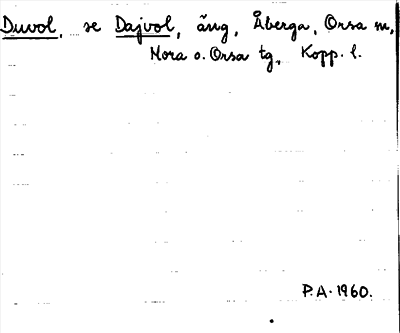 Duvol, se Dajvol, äng, Åberga, Orsa m,
Mora o. Orsa tg, Kopp. l.
P.A. 1960.